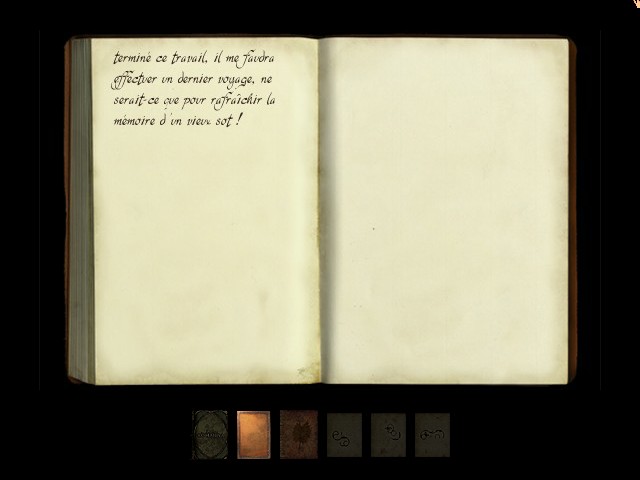 terminé ce travail, il me faudra
effectuer un dernier voyage, ne
serait-ce que pour rafraîchir la
mémoire d'un vieux sot !